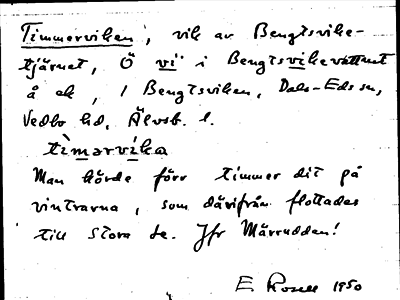 Timmerviken, vik av Bengtsvike-
tjärnet, Ö vi i Bengtsvikevattnet
å ek, / Bengtsviken, Dals-Eds sn,
Vedbo hd, Älvsb. l.
tìmərvika
Man körde förr timmer dit på
vintrarna, som därifrån flottades
till Stora Le. Jfr Märrudden!
E Rosell 1950